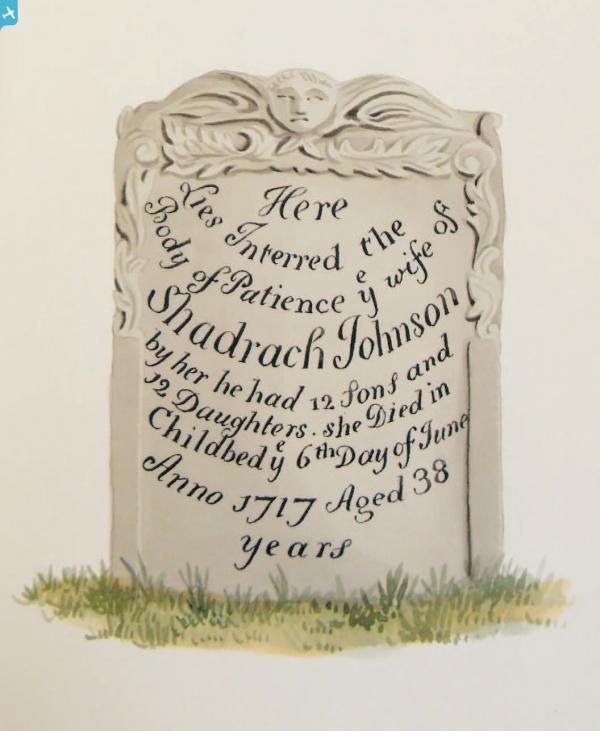 Here
Lies Interred the
Body of Patience yͤ wife of
Shadrach Johnson
by her he had 12 Sons and
12 Daughters. she Died in
Childbed yͤ 6th Day of June
Anno 1717 Aged 38
years